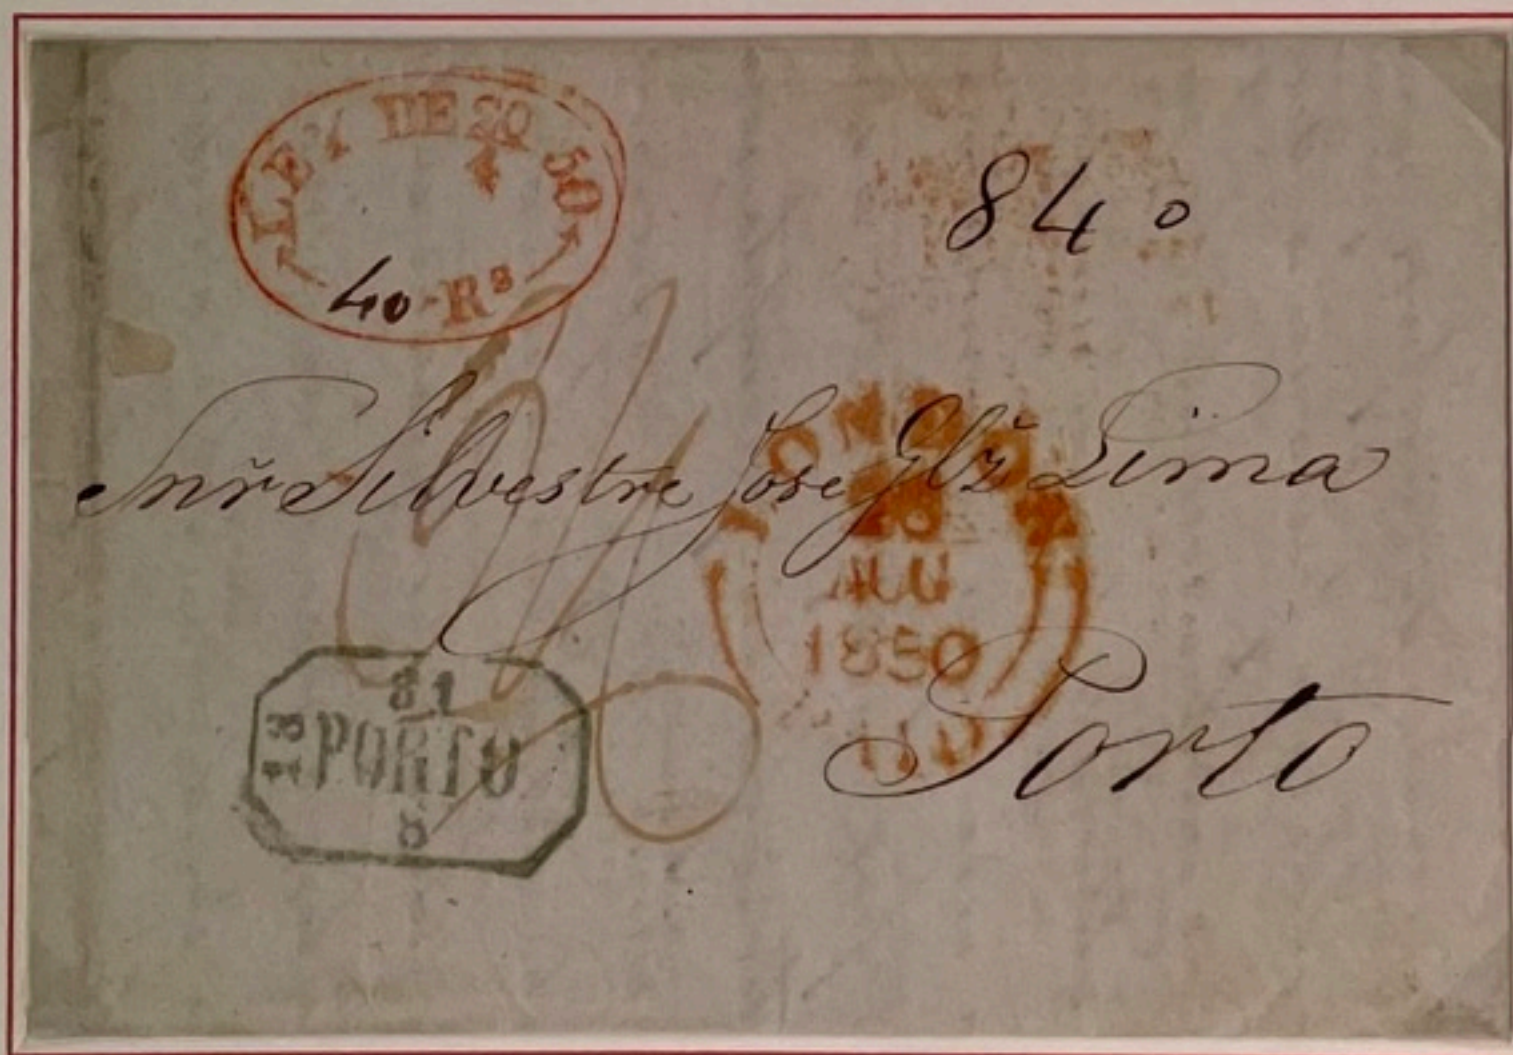 LEY DE 20 50
4
40 Rs
840
Snr̃ Silvestre Jose Glz̃ Lima
LONDON
AUG
1850
Porto
31
PORTO
8